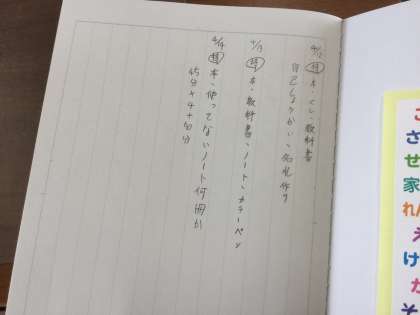 4/12 持 本・くし・教科書
自己しょうかい、名札作り
4/13 持 本、教科書、ノート、カラーペン
4/14 持 本、使ってないノート何冊か
45分×4+50分
こ
さ
せ
家
れ
え
け
か
そ